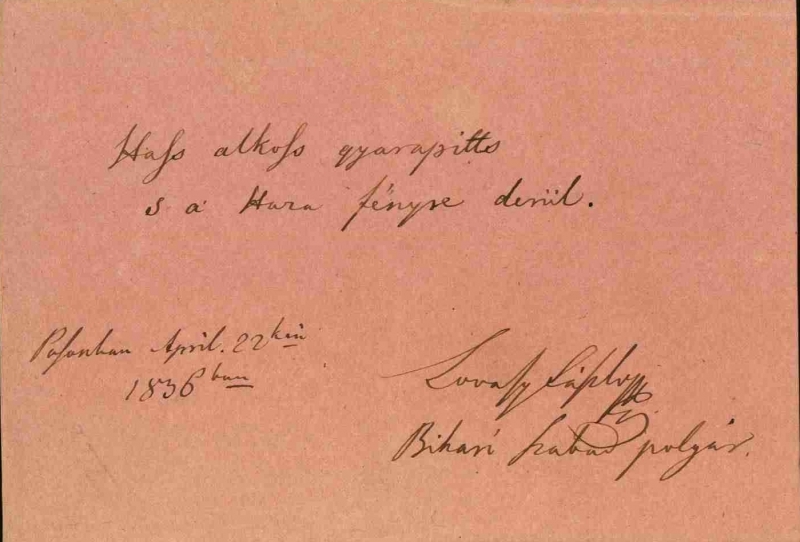 Hass alkoss gyarapitts
s a' Haza fényre derül.
Posonban April. 22kén
1836ban
Lovassy László
Bihari szabad polgár.